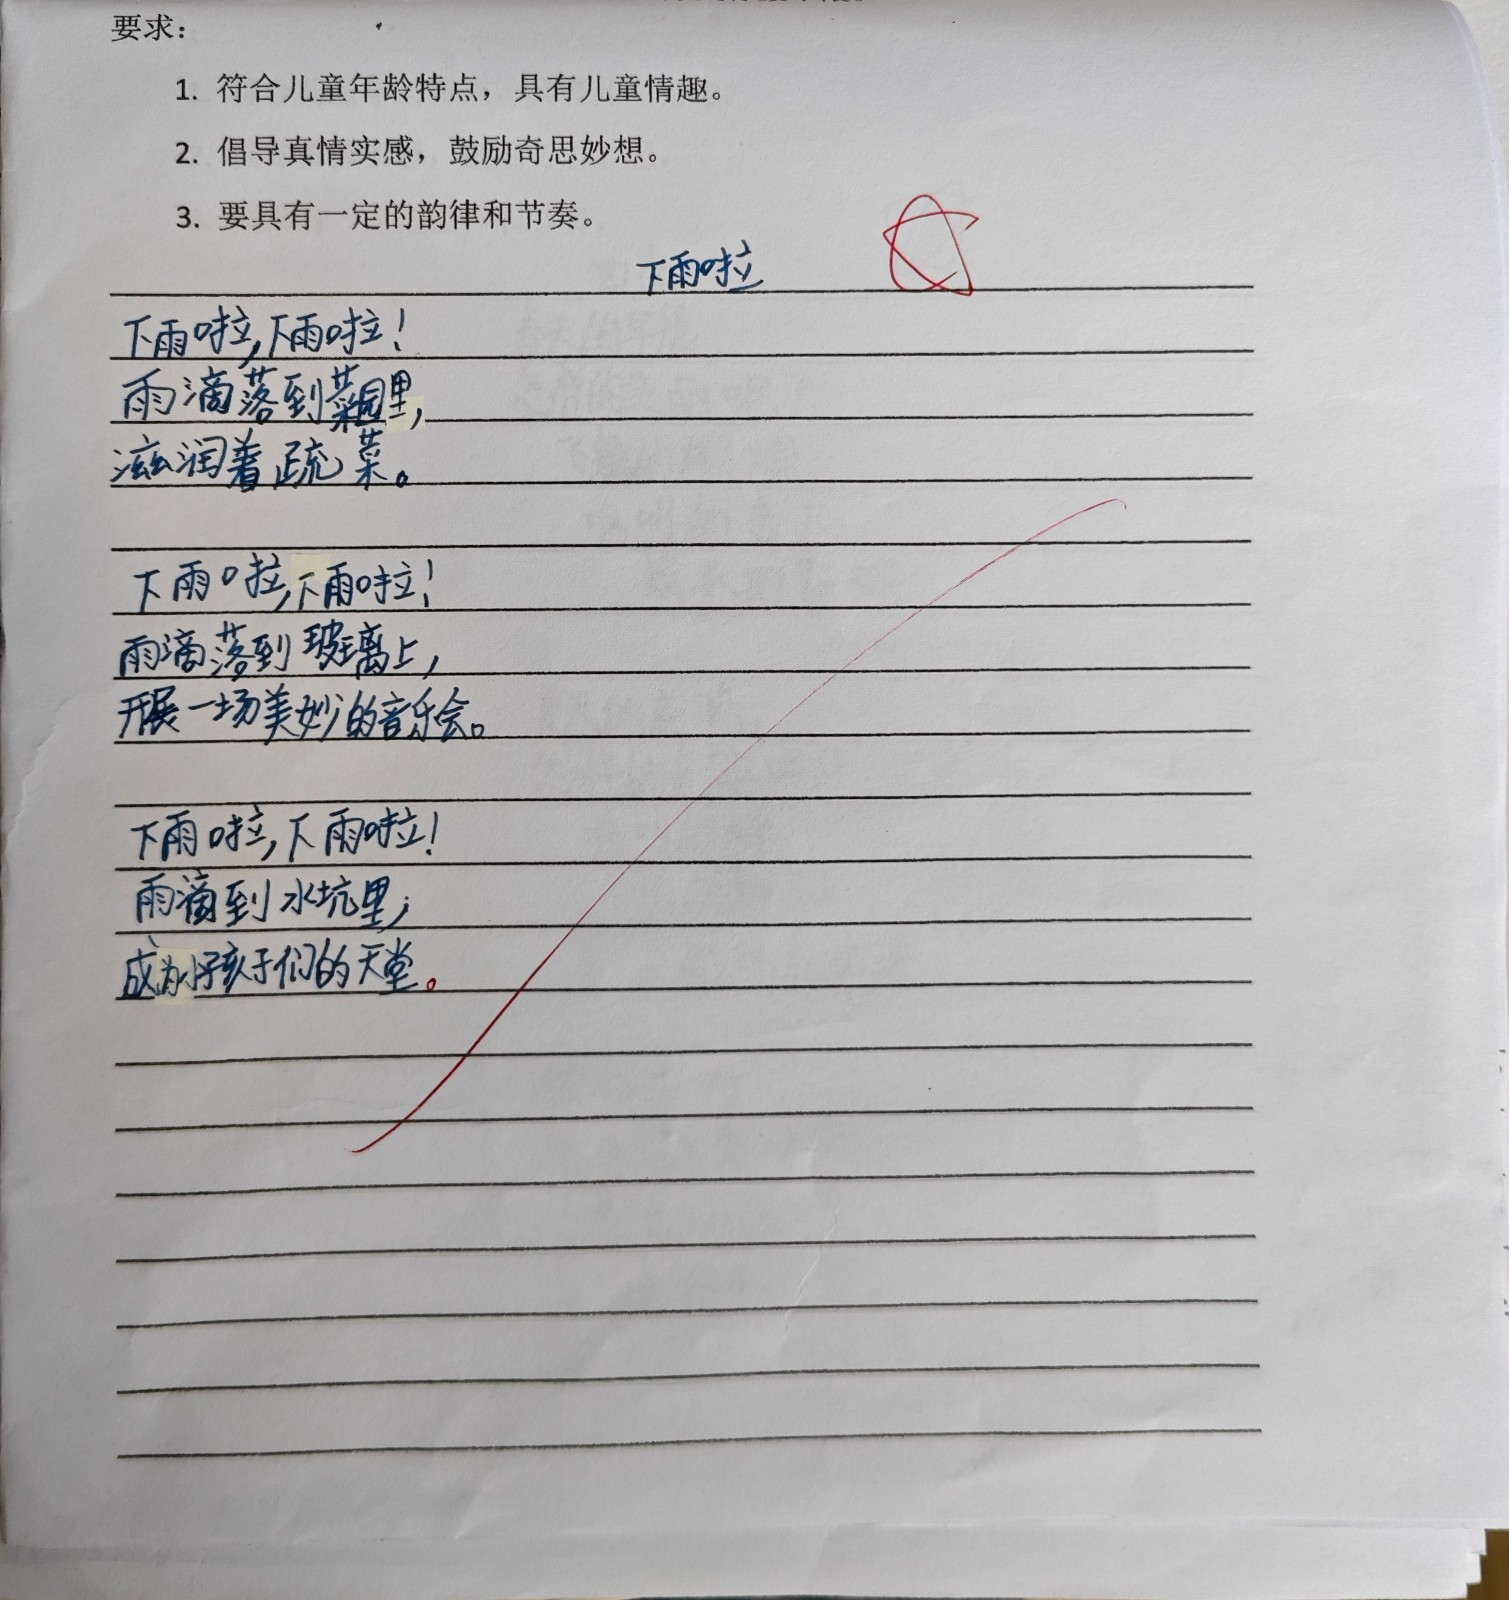 要求：
1. 符合儿童年龄特点，具有儿童情趣。
2. 倡导真情实感，鼓励奇思妙想。
3. 要具有一定的韵律和节奏。
下雨啦
下雨啦,下雨啦!
雨滴落到菜园里,
滋润着疏菜。
下雨啦,下雨啦!
雨滴落到玻璃上,
开展一场美妙的音乐会。
下雨啦,下雨啦!
雨滴到水坑里,
成为小孩子们的天堂。